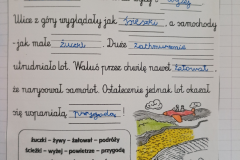 wyżej
Ulice z góry wyglądały jak ścieżki, a samochody
- jak małe żuczki. Duże zachmurzenia
utrudniało lot. Waluś przez chwilę nawet żałował,
że narysował samolot. Ostatecznie jednak lot okazał
się wspaniałą przygodą!
żuczki – żywy – żałował – podróży
ścieżki – wyżej – powietrze – przygodą